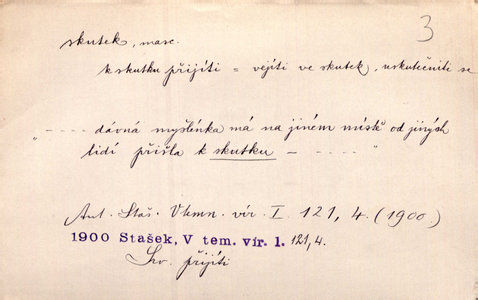 3
skutek, masc.
k skutku přijíti = vejíti ve skutek, uskutečniti se
„ - - - - dávná myšlénka má na jiném místě od jiných
lidí přišla k skutku - - - - - "
Ant. Staš. V temn. vír. I 121, 4. (1900)
1900 Stašek, V tem. vír. 1. 121, 4.
Srv. přijíti